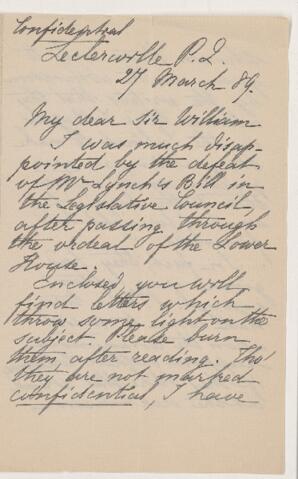 Confidential
Leclercville P.Q.
27 March 89.
My dear Sir William
I was much disap-
pointed by the defeat
of Mr Lynch's Bill in
the Legislative Council,
after passing through
the ordeal of the Lower
House.
Inclosed you will
find letters which
throw some light on the
subject. Please burn
them after reading. Tho'
they are not marked
confidential, I have